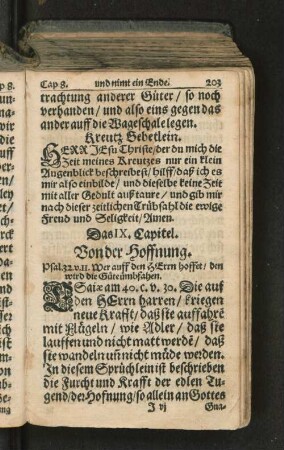 Cap 8. und nimt ein Ende. 203
trachtung anderer Güter / so noch
verhanden / und also eins gegen das
ander auff die Wageschale legen.
Kreutz Gebetlein.
HERR JEsu Christe / der du mich die
Zeit meines Kreutzes nur ein klein
Augenblick beschreibest / hilff / daß ich es
mir also einbilde / und dieselbe keine Zeit
mit aller Gedult außtaure / und gib mir
nach dieser zeitlichen Trübsahl die ewige
Freud und Seligkeit / Amen.
Das IX. Capitel.
Von der Hoffnung.
Psal. 32. v. 11. Wer auff den HErrn hoffet / den
wird die Güte ümbfahen.
ESaiæ am 40. c. v. 30. Die auf
den HErrn harren / kriegen
neue Krafft / daß sie auffahrẽ
mit Flügeln / wie Adler / daß sie
lauffen und nicht matt werdẽ / daß
sie wandeln uñ nicht müde werden.
In diesem Sprüchlein ist beschrieben
die Furcht und Krafft der edlen Tu-
gend / der Hofnung / so allein an Gottes
J vj Gna-